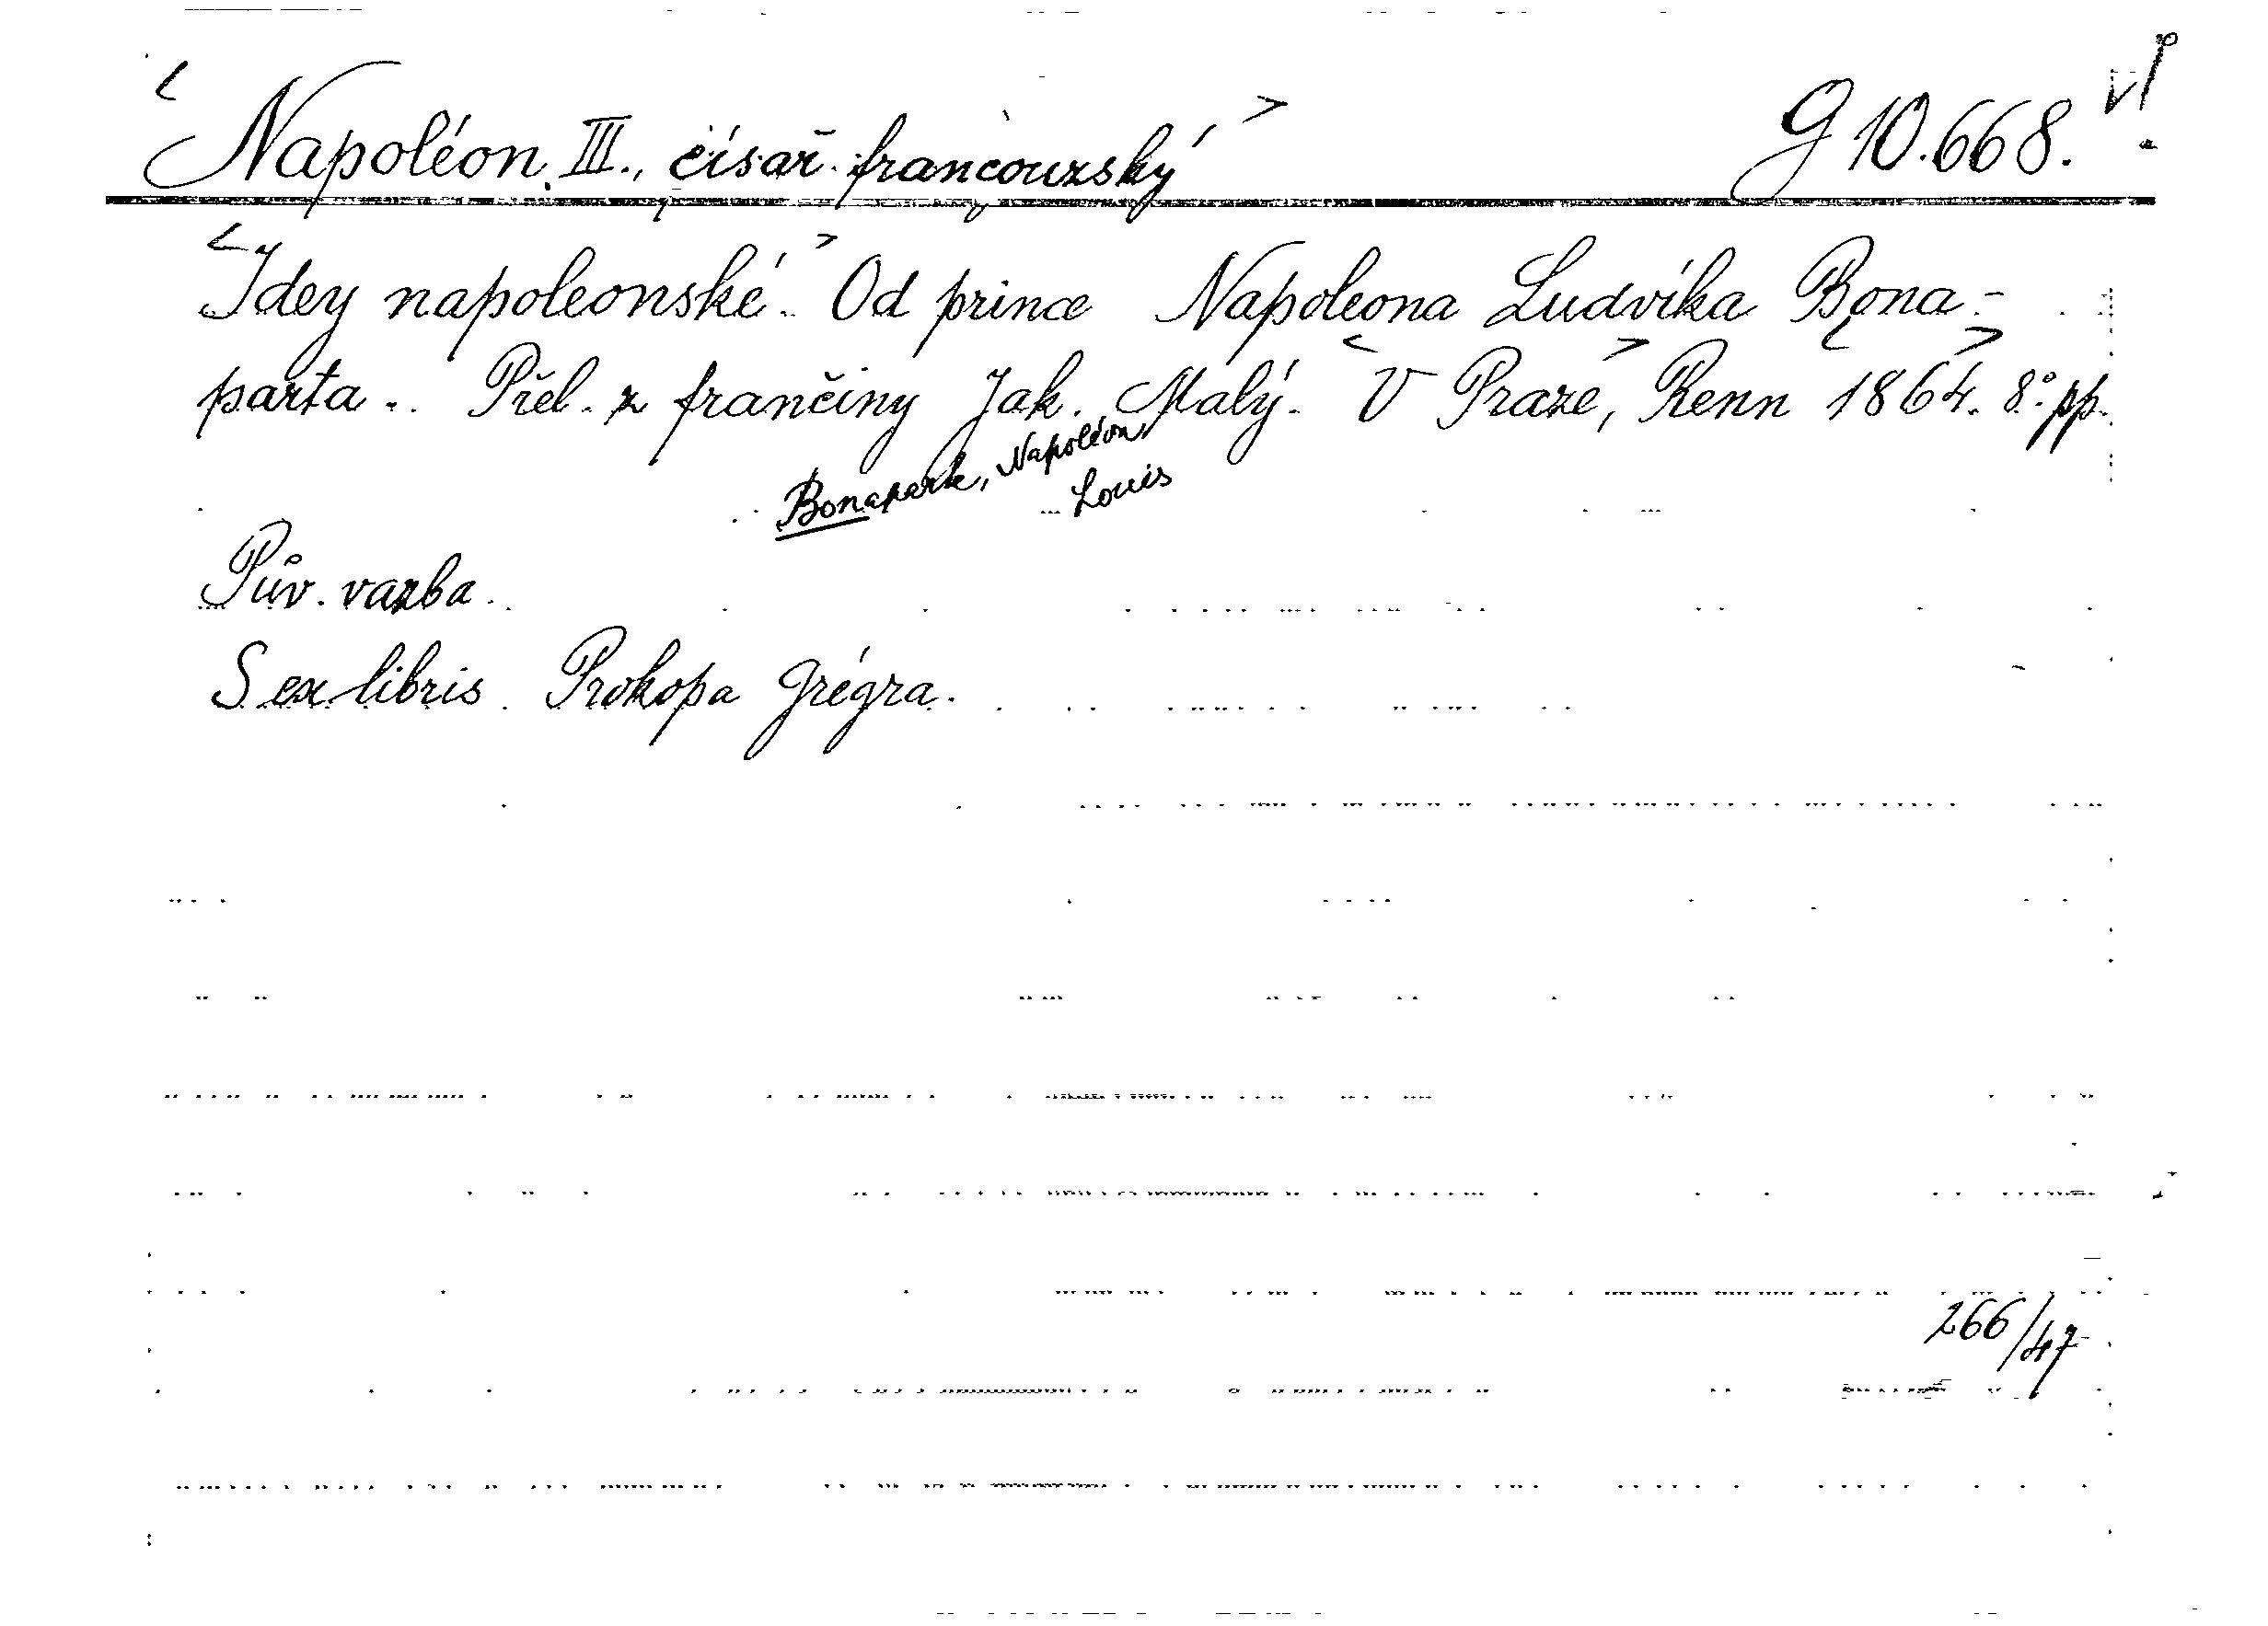 <Napoléon III., císař francouzský> G 10.668.
<Idey napoleonské.> Od prince Napoleona Ludvíka Bona-
parta.. Přel. z frančiny Jak. Malý. <V Praze>, Renn <1864>. 8° pp.
Bonaparte, Napoléon
Louis
Pův. vazba.
S ex libris Prokopa Grégra.
266/47